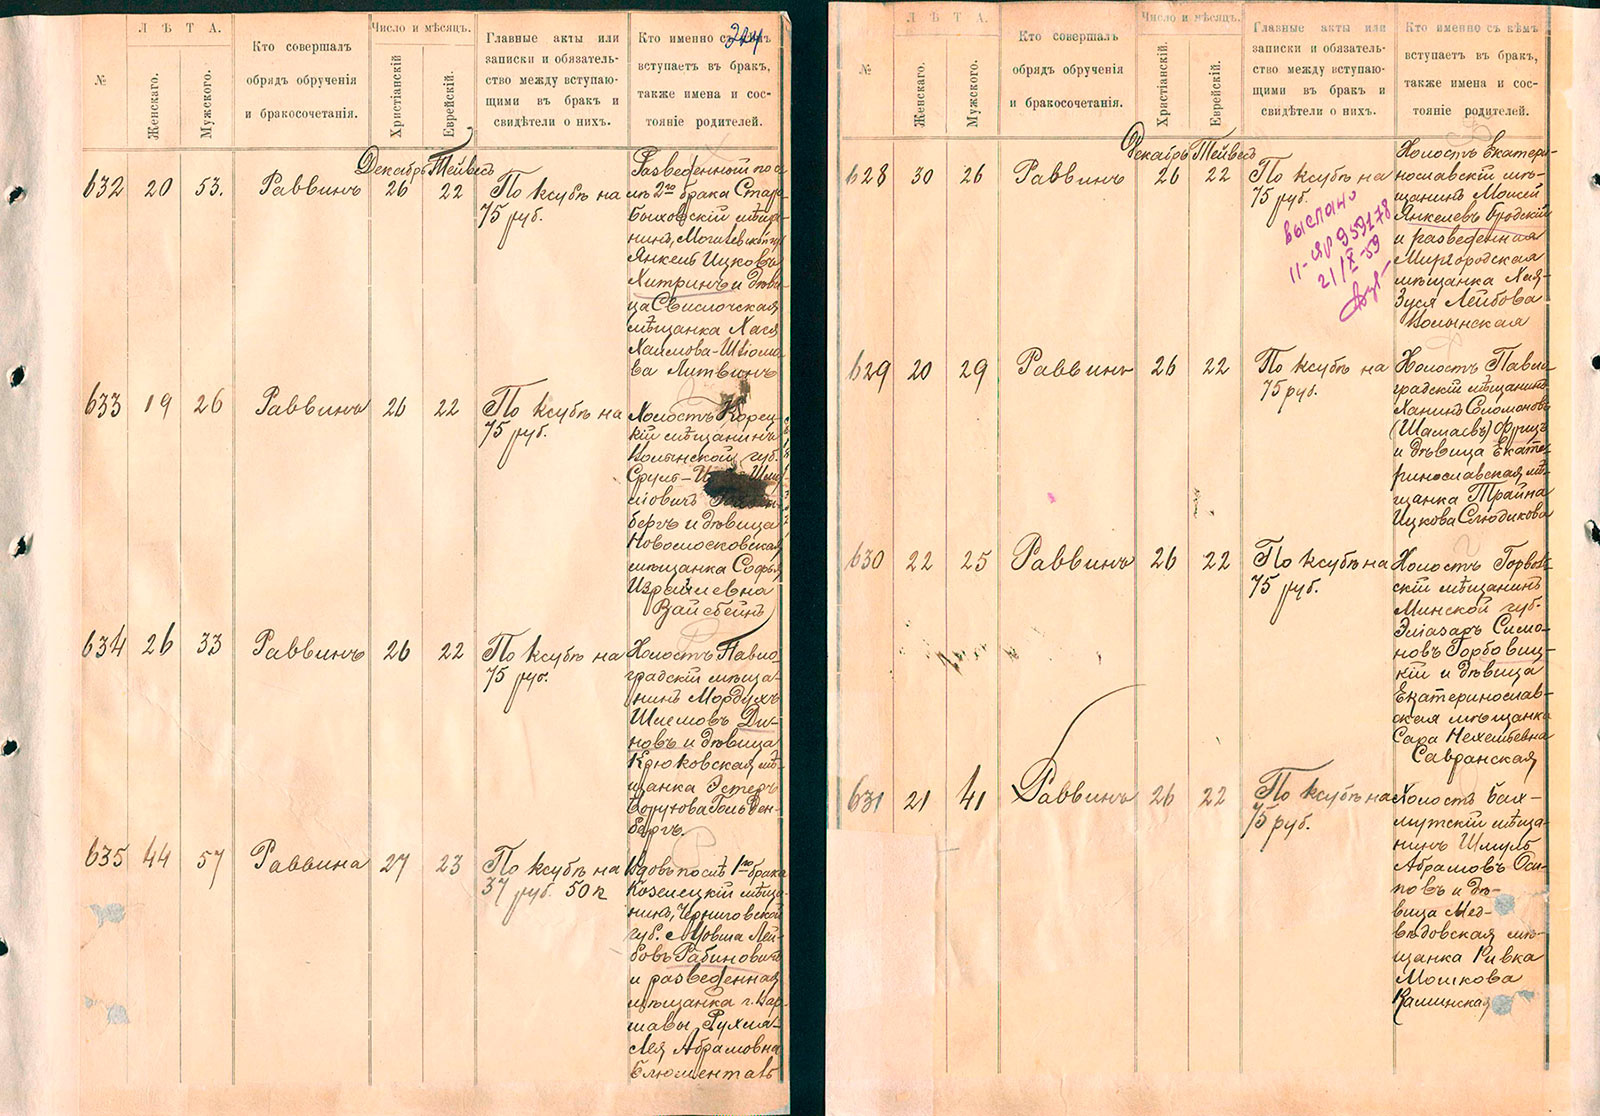 224
№
Л Ѣ Т А.
Женскаго.
Мужского.
Кто совершалъ
обрядъ обрученія
и бракосочетанія.
Число и мѣсяцъ.
Христіанскій
Еврейскій.
Главные акты или
записки и обязатель-
ство между вступаю-
щими въ бракъ и
свидѣтели о нихъ.
Кто именно съ кѣмъ
вступаетъ въ бракъ,
также имена и сос-
тояніе родителей.
Декабрь Тейвесъ
632 20 53. Раввинъ 26 22 По ксубѣ на
75 руб.
Разведенный по
2го брака Старо
Быховскій мѣща-
нинъ, Могилевской
Янкель Ицковъ
Хитринъ и дѣви
ца Свислочская
мѣщанка Хася
Хаимова-Шліомо
ва Литвинъ
633 19 26 Раввинъ 26 22 По ксубѣ на
75 руб.
Холостъ Корец-
кій мѣщанинъ
Волынской губ.
Сруль-
бергъ и дѣвица
Новомосковская
мѣщанка Софья
Израилевна
Вайсбейнъ
634 26 33 Раввинъ 26 22 По ксубѣ на
75 руб.
Холостъ Павло-
градскій мѣща-
нинъ Мордухъ
Шлемовъ Ди-
новъ и дѣвица
Крюковская мѣ-
щанка Эстеръ
Борухова Гольден-
бергъ.
635 44 57 Раввина 27 23 По ксубѣ на
37 руб. 50 к
Вдовъ послѣ 1го брака
Козелецкій мѣща-
нинъ, Черниговской
губ. Мовша Лей-
бовъ Рабиновичъ
и разведенная
мѣщанка г. Вар-
шавы, Рухля-
Лея Абрамовна
Блюменталь
№
Л Ѣ Т А.
Женскаго.
Мужского.
Кто совершалъ
обрядъ обрученія
и бракосочетанія.
Число и мѣсяцъ.
Христіанскій
Еврейскій.
Главные акты или
записки и обязатель-
ство между вступаю-
щими въ бракъ и
свидѣтели о нихъ.
Кто именно съ кѣмъ
вступаетъ въ бракъ,
также имена и сос-
тояніе родителей.
Декабрь Тейвесъ
628 30 26 Раввинъ 26 22 По ксубѣ на
75 руб.
Холостъ Екатери-
нославскій мѣ-
щанинъ Моисей
Янкелевъ Бродскій
и разведенная
Миргородская
мѣщанка Хая-
Зуся Лейбова
Волынская
выслано
II-ЯР 959178
21/X-59
629 20 29 Раввинъ 26 22 По ксубѣ на
75 руб.
Холостъ Павло
градскій мѣщанинъ
Ханинъ Соломоновъ
(Шамаевъ) Фрицъ
и дѣвица Екате-
ринославская мѣ-
щанка Трайна
Ицкова Слюдикова
630 22 25 Раввинъ 26 22 По ксубѣ на
75 руб.
Холостъ
скій мѣщанинъ
Минской губ.
Эліазаръ Симо-
новъ Горбовиц-
кій и дѣвица
Екатеринослав-
ская мѣщанка
Сара Нехемьевна
Савранская
631 21 41 Раввинъ 26 22 По ксубѣ на
75 руб.
Холостъ Бах-
мутскій мѣща-
нинъ Шмуль
Абрамовъ Оси-
повъ и дѣ-
вица Мед-
вѣдовская мѣ-
щанка Ривка
Мошкова
Калинская